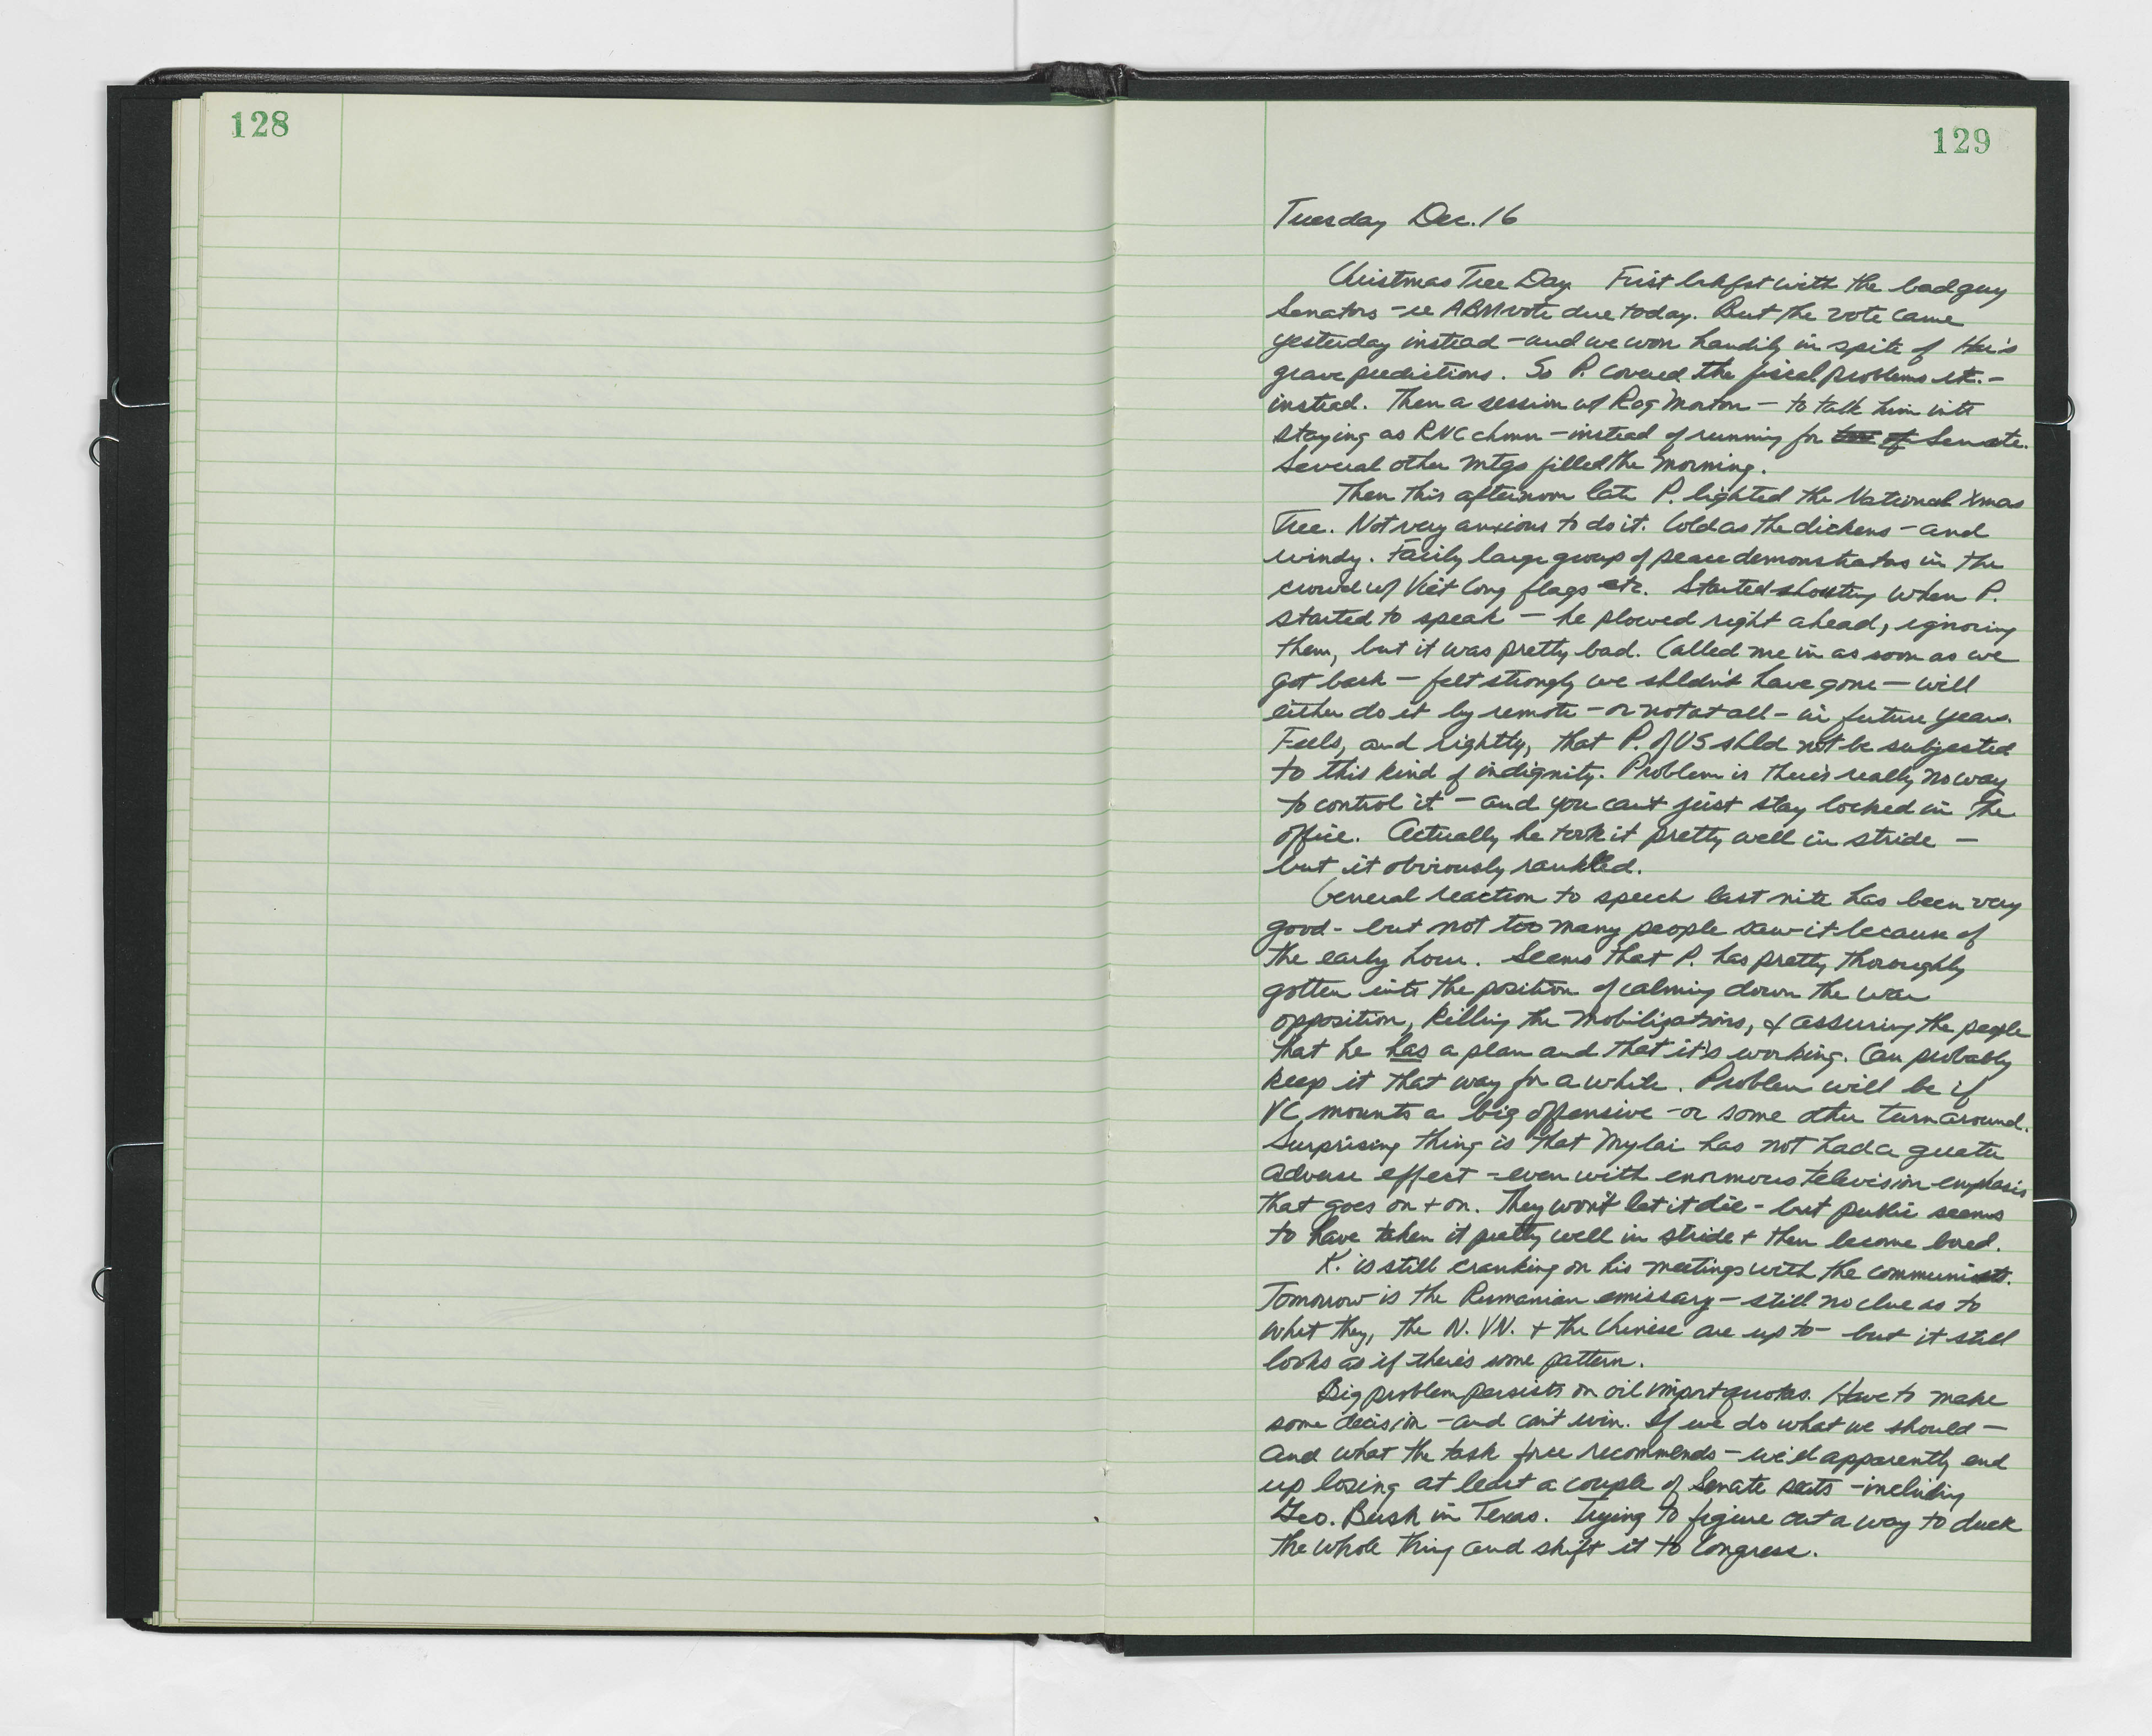 128
129
Tuesday Dec. 16
Christmas Tree Day. First bkfst with the bad guy
Senators - re ABM vote due today. But the vote came
yesterday instead - and we won handily in spite of Har's
grave predictions. So P. covered the fiscal problems etc. -
instead. Then a session w/ Rog Morton - to talk him into
staying as RNC chmn - instead of running for Senate.
Several other mtgs filled the morning.
Then this afternoon late P. lighted the National Xmas
Tree. Not very anxious to do it. Cold as the dickens - and
windy. Fairly large group of peace demonstrators in the
crowd w/ Viet Cong flags etc. Started shouting when P.
started to speak - he plowed right ahead, ignoring
them, but it was pretty bad. Called me in as soon as we
got back - felt strongly we shldn't have gone - will
either do it by remote - or not at all - in future years.
Feels, and rightly, that P. of US shld not be subjected
to this kind of indignity. Problem is there's really no way
to control it - and you can't just stay locked in the
office. Actually he took it pretty well in stride -
but it obviously rankled.
General reaction to speech last nite has been very
good - but not too many people saw it because of
the early hour. Seems that P. has pretty thoroughly
gotten into the position of calming down the war
opposition, killing the mobilizations, & assuring the people
that he has a plan and that it's working. Can probably
keep it that way for a while. Problem will be if
VC mounts a big offensive - or some other turn around.
Surprising thing is that Mylai has not had a greater
adverse effect - even with enormous television emphasis
that goes on + on. They won't let it die - but public seems
to have taken it pretty well in stride + then become bored.
K. is still cranking on his meetings with the communists.
Tomorrow is the Rumanian emissary - still no clue as to
what they, the N. VN. + the Chinese are up to - but it still
looks as if there's some pattern.
Big problem persists on oil import quotas. Have to make
some decision - and can't win. If we do what we should -
and what the task force recommends - we'd apparently end
up losing at least a couple of Senate seats - including
Geo. Bush in Texas. Trying to figure out a way to duck
the whole thing and shift it to Congress.